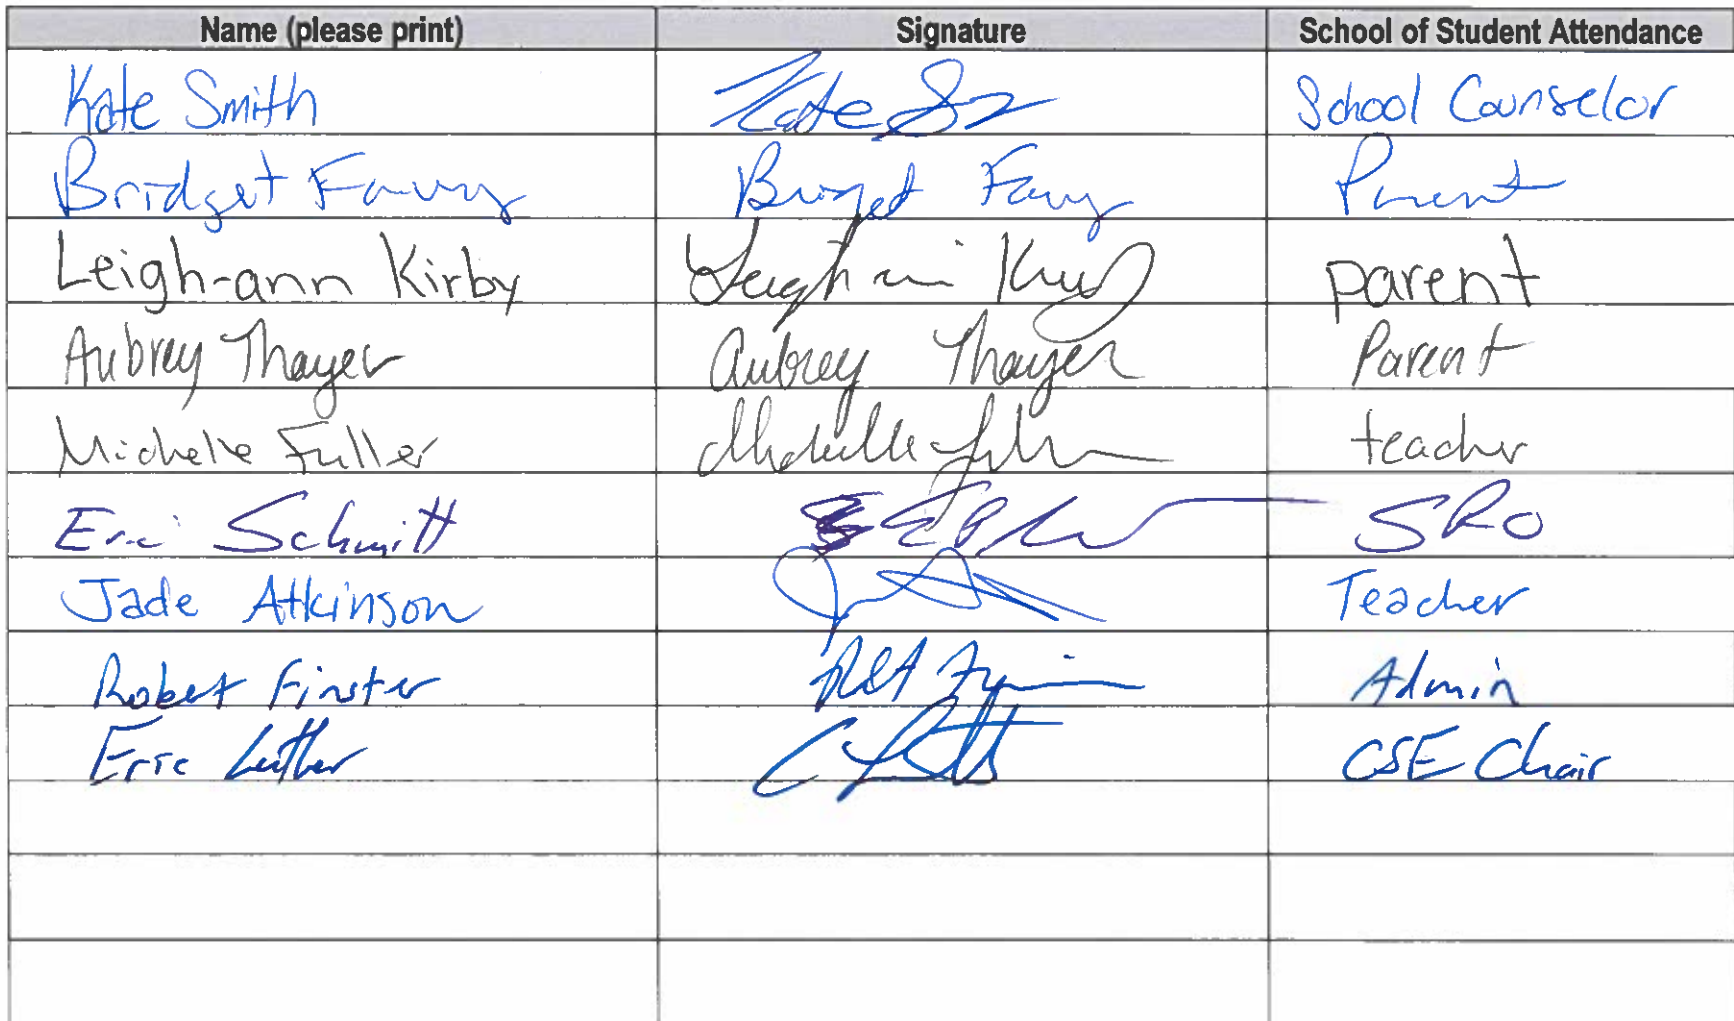 Name (please print) Signature School of Student Attendance
Kate Smith Kate S School Counselor
Bridget Bridget Parent
Leigh-ann Kirby Leigh Parent
Aubrey Thayer Aubrey Thayer Parent
Michelle Fuller Michelle teacher
Eric Schmitt SRO
Jade Atkinson Teacher
Robert Finster Admin
Eric Luther CSE Chair